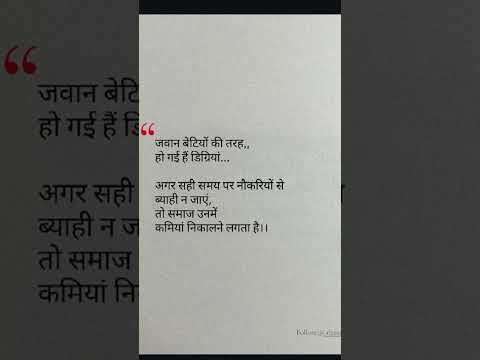 “
जवान बेटियों की तरह,,
हो गई हैं डिग्रियां...
अगर सही समय पर नौकरियों से
ब्याही न जाएं,
तो समाज उनमें
कमियां निकालने लगता है।।
“
जवान
हो गई हैं
तो समाज
कमियां
Follow